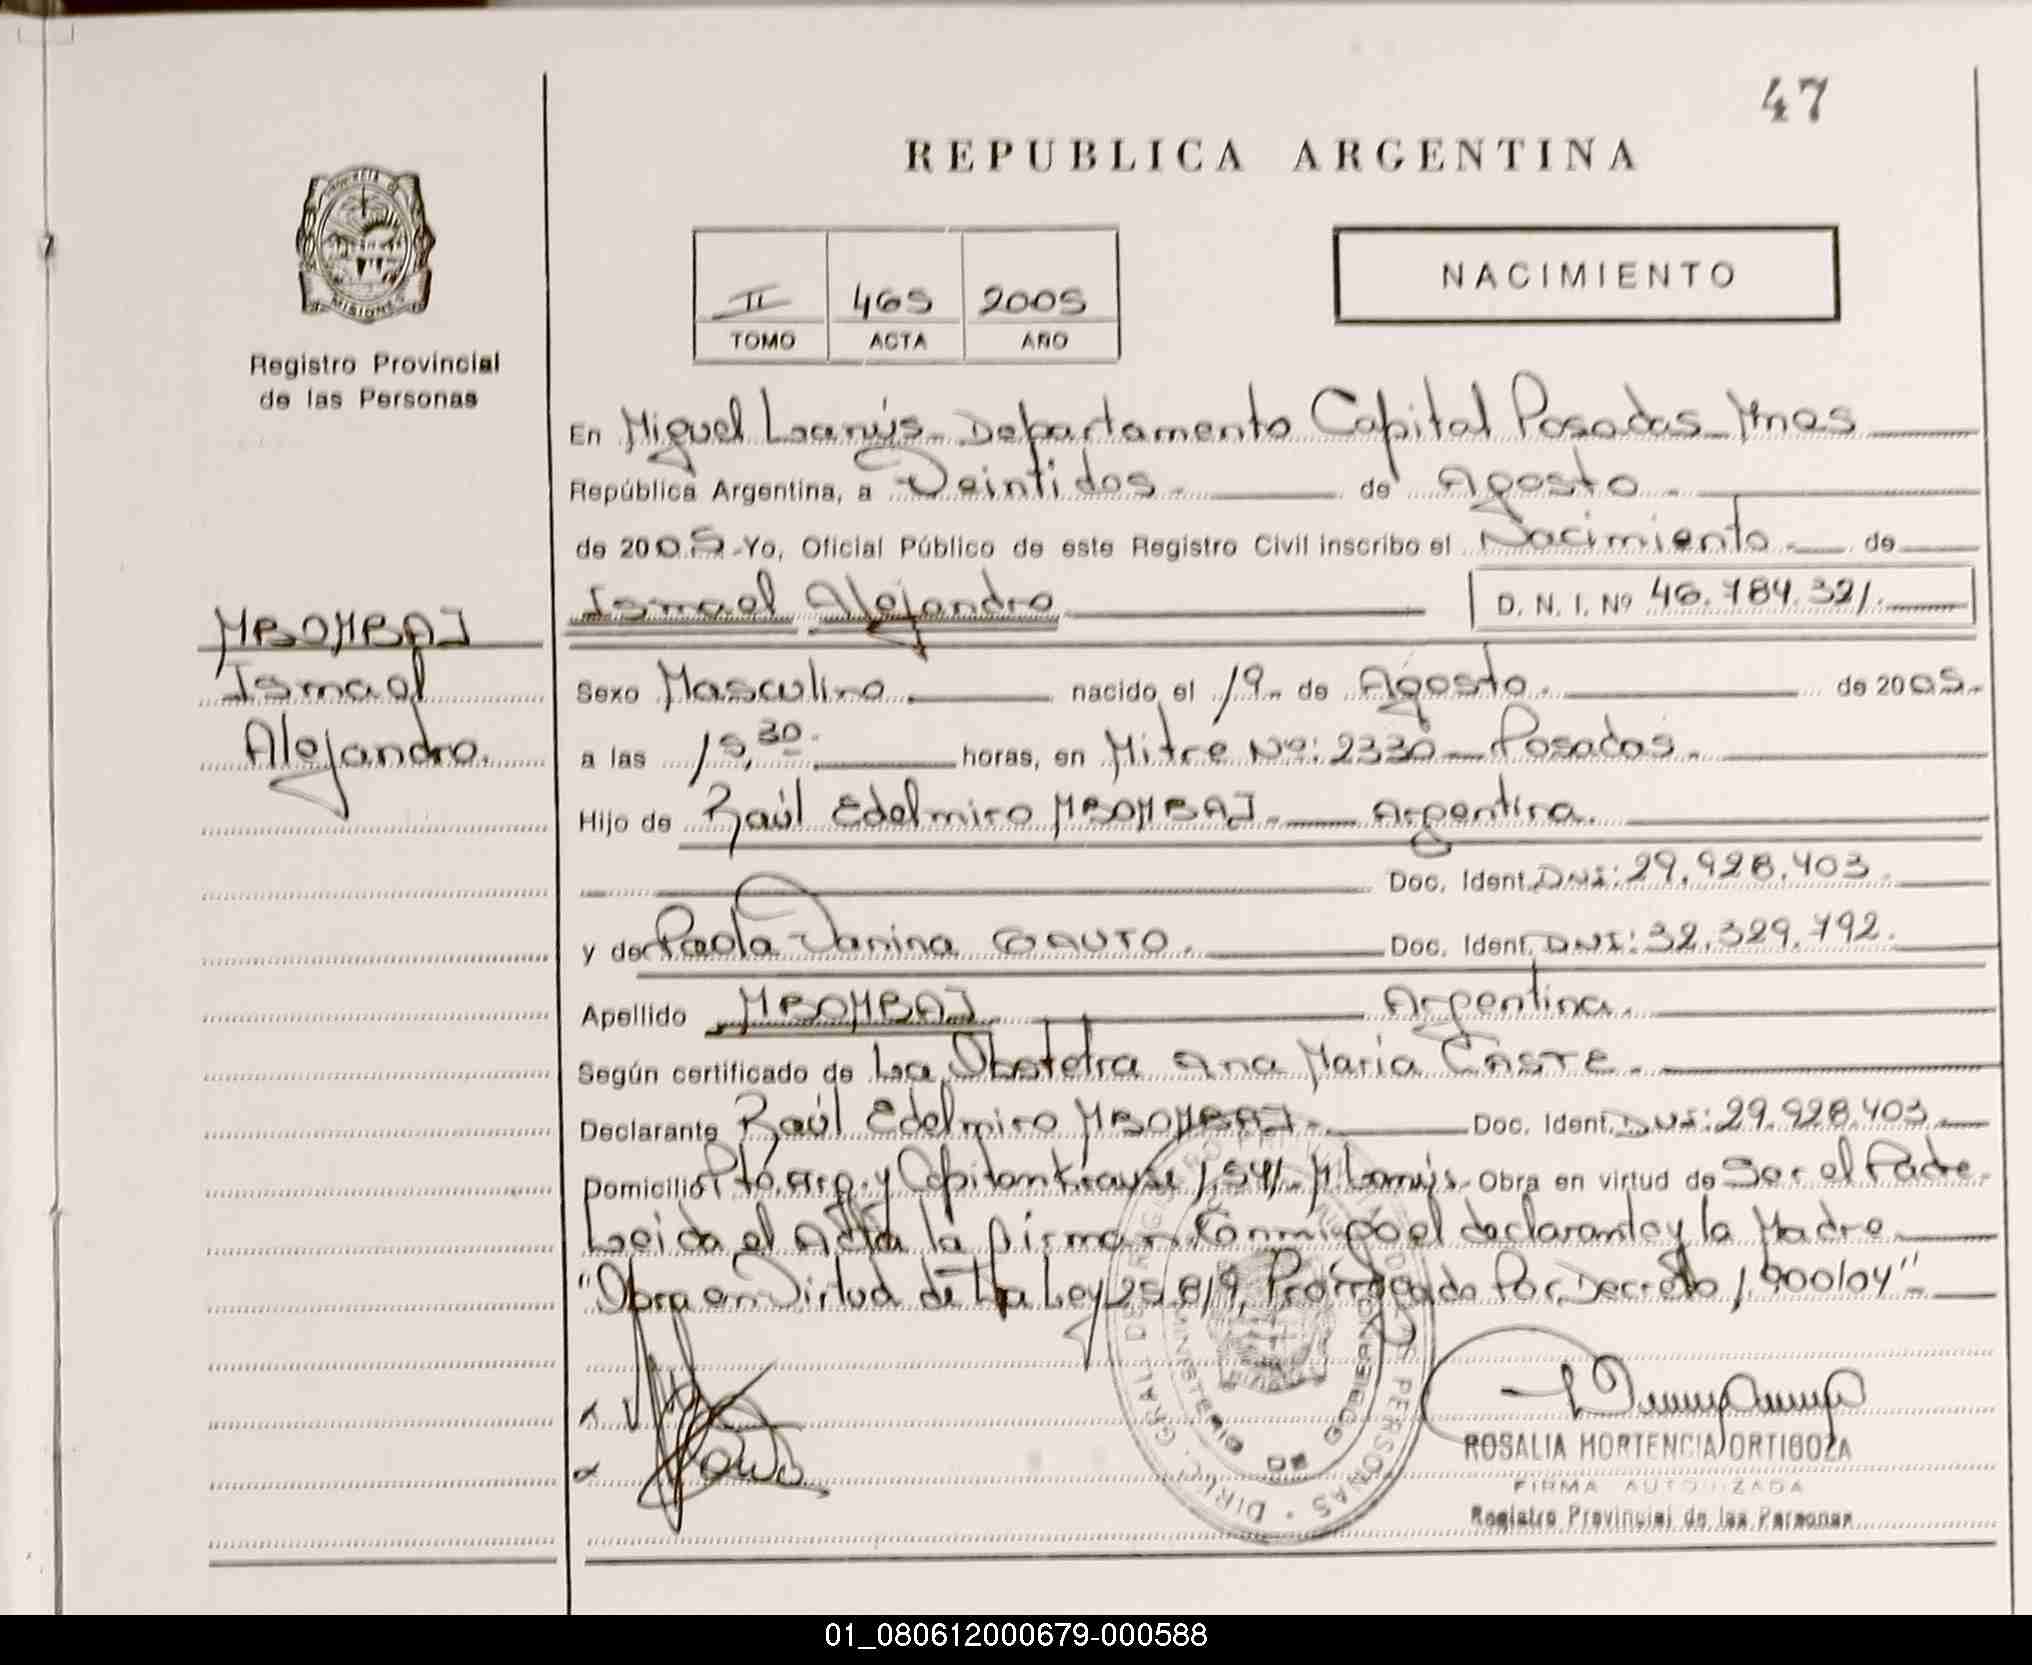 47
REPUBLICA ARGENTINA
MISIONES
Registro Provincial
de las Personas
II 465 2005
TOMO ACTA AÑO
NACIMIENTO
En Miguel Lanús - Departamento Capital Posadas - Mnes
República Argentina, a Veintidos - de Agosto -
de 2005 - Yo, Oficial Público de este Registro Civil inscribo el Nacimiento - de
Ismael Alejandro D. N. I. Nº 46.784.321.
MBOMBAJ
Ismael
Alejandro.
Sexo Masculino nacido el 19 - de Agosto. de 2005.
a las 15,30. horas, en Mitre Nº: 2330 - Posadas.
Hijo de Raúl Edelmiro MBOMBAJ. Argentina.
Doc. Ident. DNI: 29.928.403
y de Paola Janina COAUTO. Doc. Ident. DNI: 32.329.792.
Apellido MBOMBAJ Argentina.
Según certificado de La Obstetra Ana Maria CASTE.
Declarante Raúl Edelmiro MBOMBAJ. Doc. Ident. DNI: 29.928.403
Domicilio Pto. Arg. y Capitan Krause 1.541 - M. Lanús - Obra en virtud de Ser el Padre.
Leida el Acta la firman conmigo el declarante y la Madre
"Obra en Virtud de La Ley 25.819, Prorrogado Por Decreto 1.900/04" -
DIREC. GRAL. DE REGISTRO PERSONAS
MINISTERIO DE GOBIERNO
ROSALIA HORTENCIA ORTIGOZA
FIRMA AUTORIZADA
Registro Provincial de las Personas
01_080612000679-000588